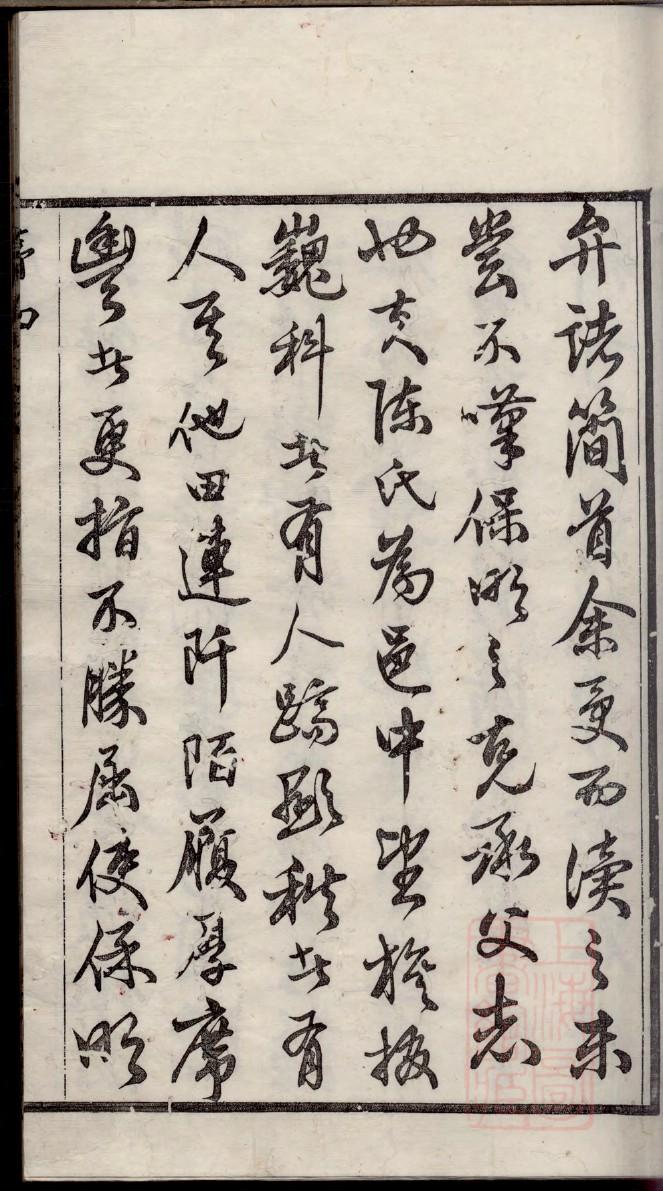 弁諸簡首余受而讀之未
嘗不嘆保明之克承父志
也夫陳氏為邑中望族掇
巍科者有人躋顯秩者有
人其他田連阡陌履厚席
豐者更指不勝屈使保明